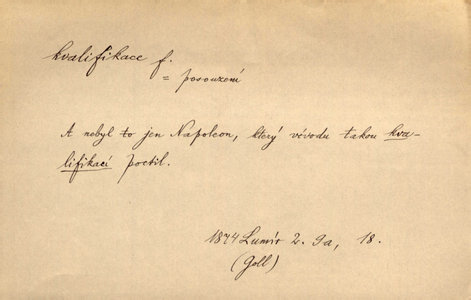 kvalifikace f.
= posouzení
A nebyl to jen Napoleon, který vévodu takou kva-
lifikací poctil.
1874 Lumír 2. 9a, 18.
(Goll)